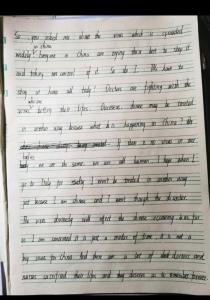 So you asked me about the virus which is spreaded
in china
widely. Everyone in China are trying their best to stop it
and taking control of it. So do I. We have to
stay at home all today! Doctors are fighting with the
virus betting their lifes. Overseas chinese may be treated
in another way because what is happening in China.
If there is no virus in our
bodies
we are the same. we are all human. I hope when I
go to Italy for I won't be treated in another way
just because I am chinese and I went though the disaster.
The virus obviously will infect the chinese economy as far
as I am concerned it is just a matter of time. It is not a
big issue for China. And there are a lot of what doctors and
nurses sacrificed their lifes and they deserve us to remember forever.